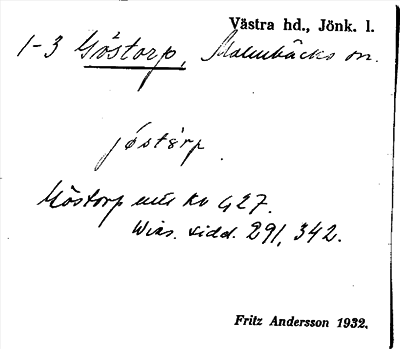 Västra hd., Jönk. l.
1-3 Göstorp, Malmbäcks sn.
jöstërp
Göstorp
Wies. sidd. 291, 342.
Fritz Andersson 1932.